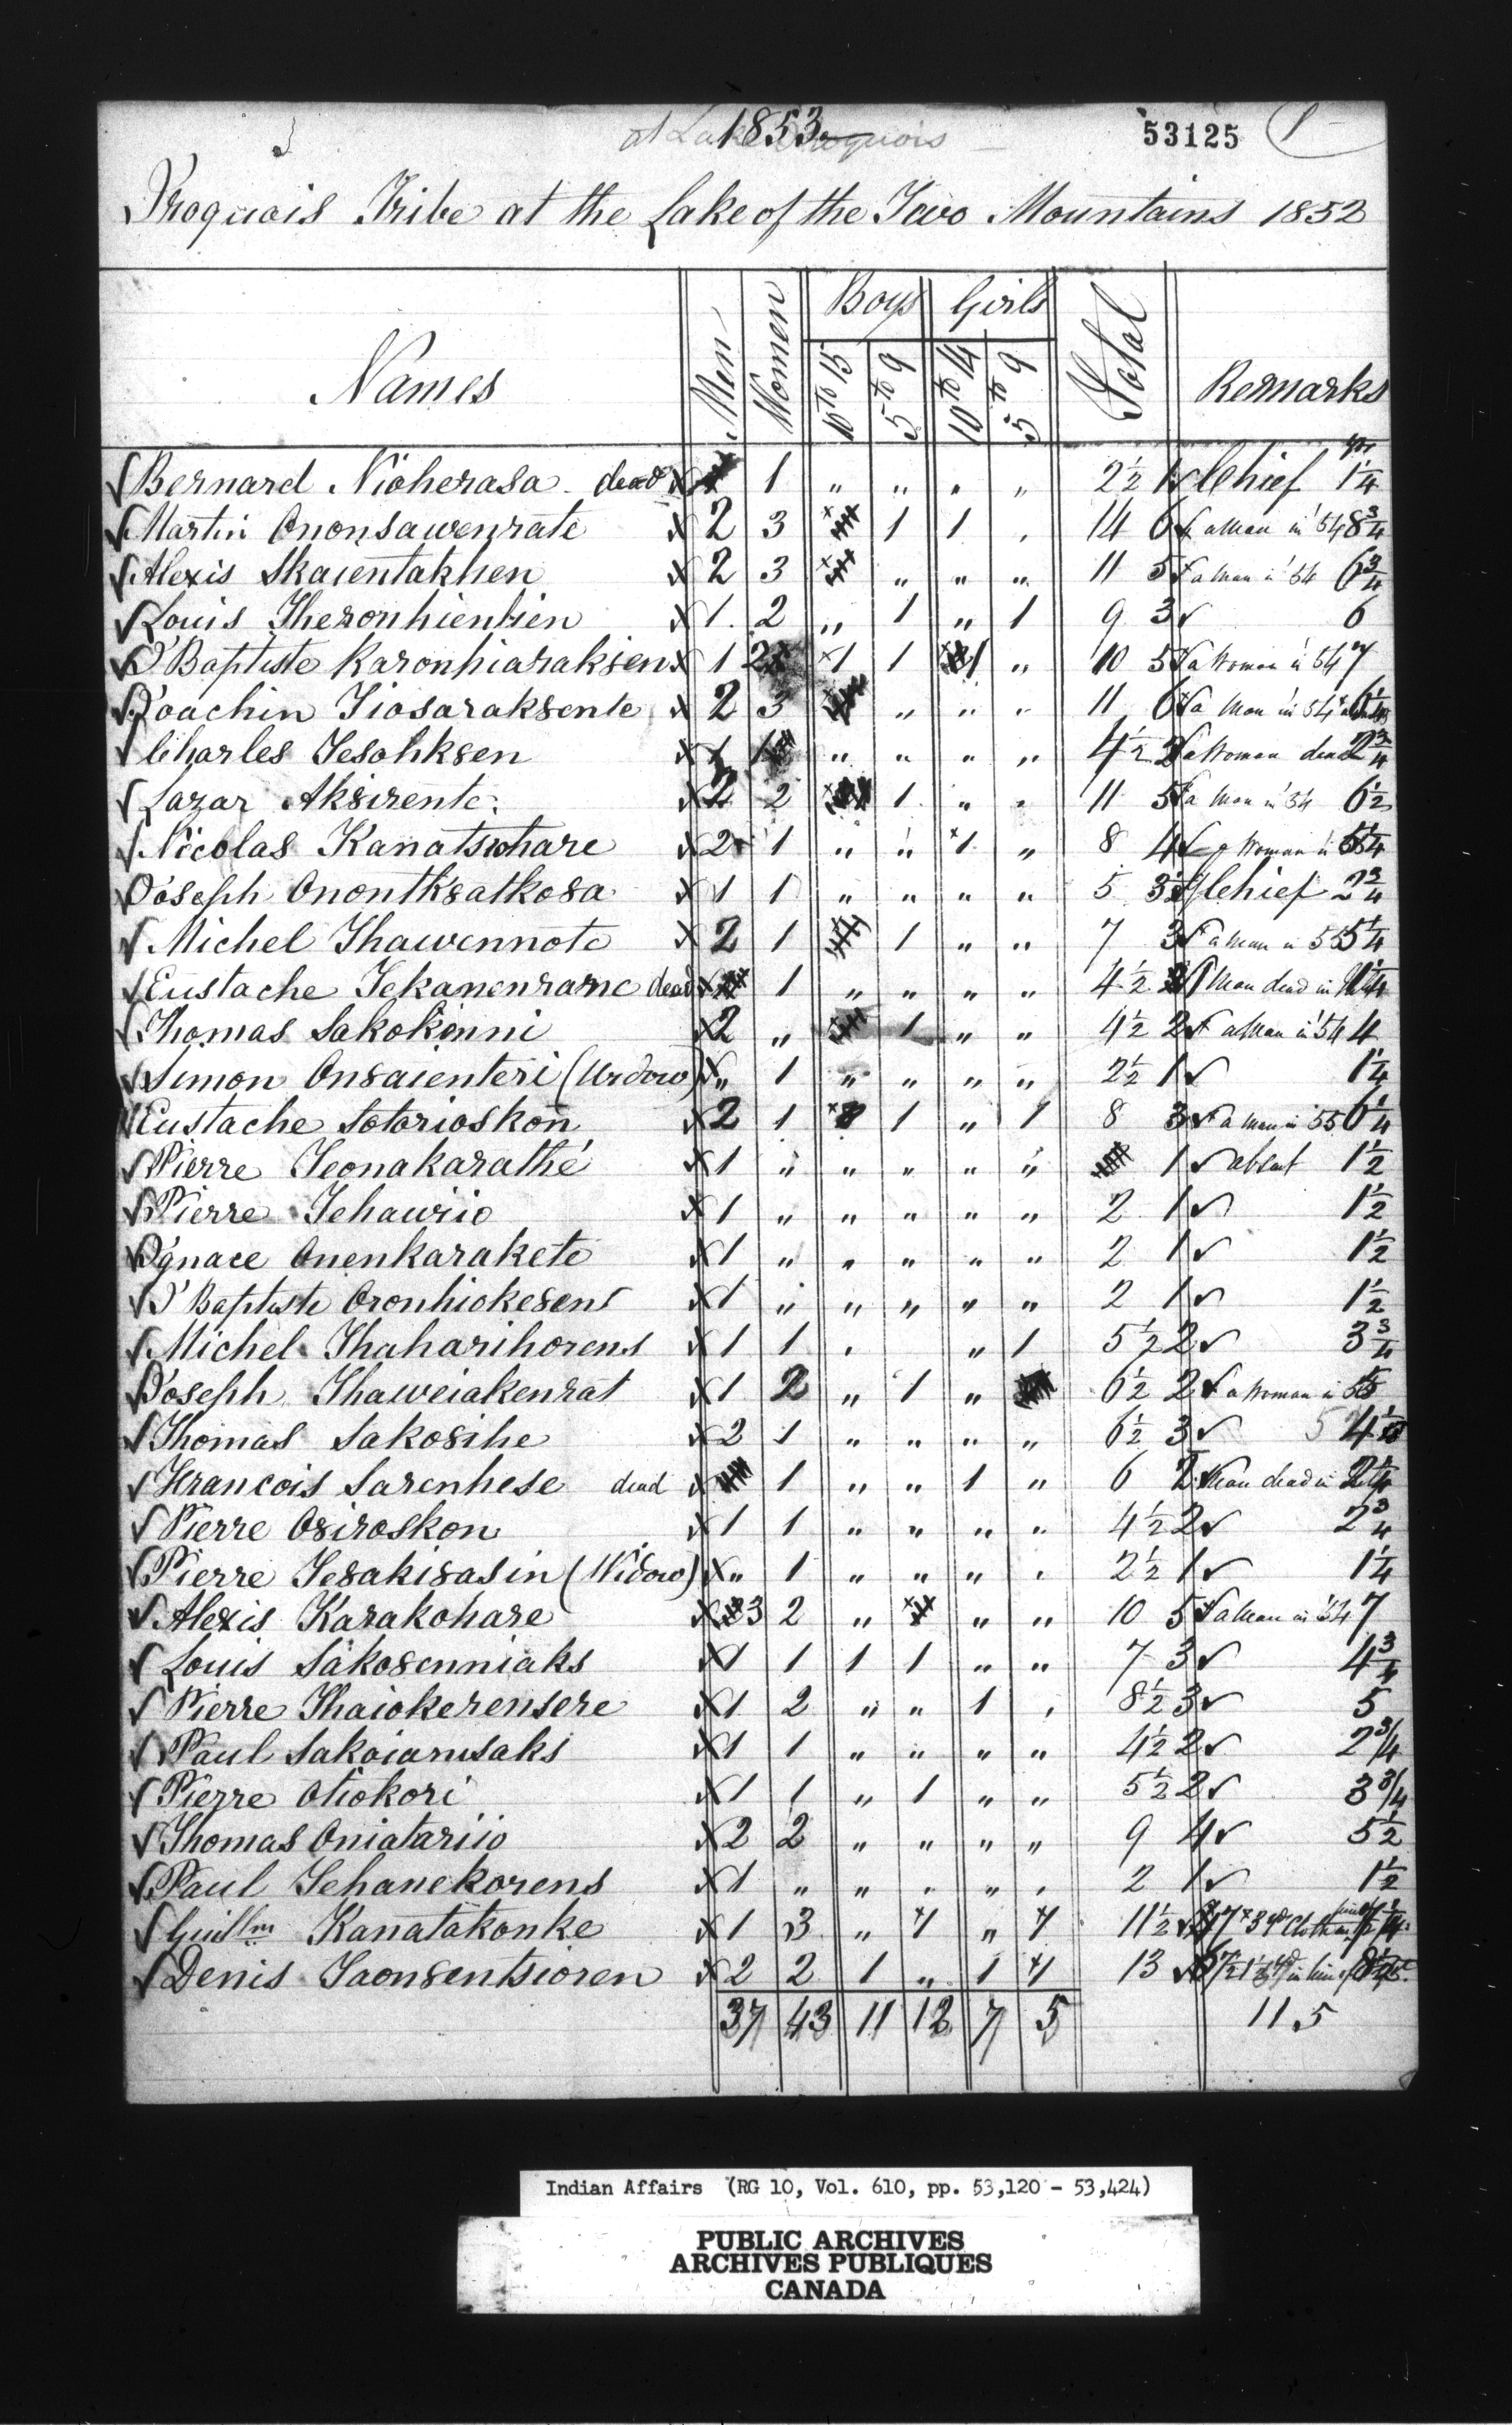 1853
53125 1
Iroquois Tribe at the Lake of the Two Mountains 1852
Names Men Women Boys Girls Total Remarks
10 to 15 5 to 9 10 to 14 5 to 9
Bernard Nioherasa dead 1 " " " " 2½ 1 Chief 1¼
Martin Ononsawenrate 2 3 1 1 14 6 a Man in '54 8¾
Alexis Skaientakhen 2 3 " " " 11 5 a Man in '54 6¾
Louis Theronhientsen 1 2 " 1 " 1 9 3 6
J Baptiste Karonhiaraksen 1 2 1 1 1 " 10 5 a Woman in 54 7
Joachin Tiosaraksente 2 3 " " " 11 6 a Man in 54
Charles Tesohksen 1 1 " " " " 4½ 2 a Woman dead 2¾
Lazar Aksirente 2 2 1 " " 11 5 a Man in 54 6½
Nicolas Kanatsohare 2 1 " " 1 " 8 4 Woman in
Joseph Onontksatkosa 1 1 " " " " 5 3 Chief 2¾
Michel Thawennote 2 1 1 " " 7 3 a Man in 55 5¼
Eustache Tekanenrane dead 1 " " " " 4½ Man dead in
Thomas Sakokenni 2 " 1 " " 4½ 2 a Man in '54 4
Simon Onsaienteri (Widow) " 1 " " " " 2½ 1 1¼
Eustache Sotorioskon 2 1 1 " 1 8 3 a Man in '55 6¼
Pierre Teonakarathé 1 " " " " " 1 absent 1½
Pierre Tehawiio 1 " " " " " 2 1 1½
Ignace Onenkarakete 1 " " " " " 2 1 1½
J Baptiste Oronhiokesens 1 " " " " " 2 1 1½
Michel Thaharihorens 1 1 " " 1 5½ 2 3¾
Joseph Thaweiakenrat 1 2 " 1 " 6½ 2 a Woman in
Thomas Sakosihe 2 1 " " " " 6½ 3 4
Francois Sarenhese dead 1 " " 1 " 6 2 Man dead in
Pierre Osiroskon 1 1 " " " " 4½ 2 2¾
Pierre Tesakisasin (Widow) " 1 " " " " 2½ 1 1¼
Alexis Karakohare 3 2 " " " 10 5 a Man in '54 7
Louis Sakosenniaks 1 1 1 1 " " 7 3 4¾
Pierre Thaiokerensere 1 2 " " 1 " 8½ 3 5
Paul Sakoiarusaks 1 1 " " " " 4½ 2 2¾
Pierre Otiokori 1 1 " 1 " " 5½ 2 3¾
Thomas Oniatariio 2 2 " " " " 9 4 5½
Paul Tehanekorens 1 " " " " " 2 1 1½
Guillm Kanatakonke 1 3 " 1 " 1 11½
Denis Taonsentsioren 2 2 1 " 1 1 13
37 43 11 12 7 5 115
Indian Affairs (RG 10, Vol. 610, pp. 53,120 - 53,424)
PUBLIC ARCHIVES
ARCHIVES PUBLIQUES
CANADA